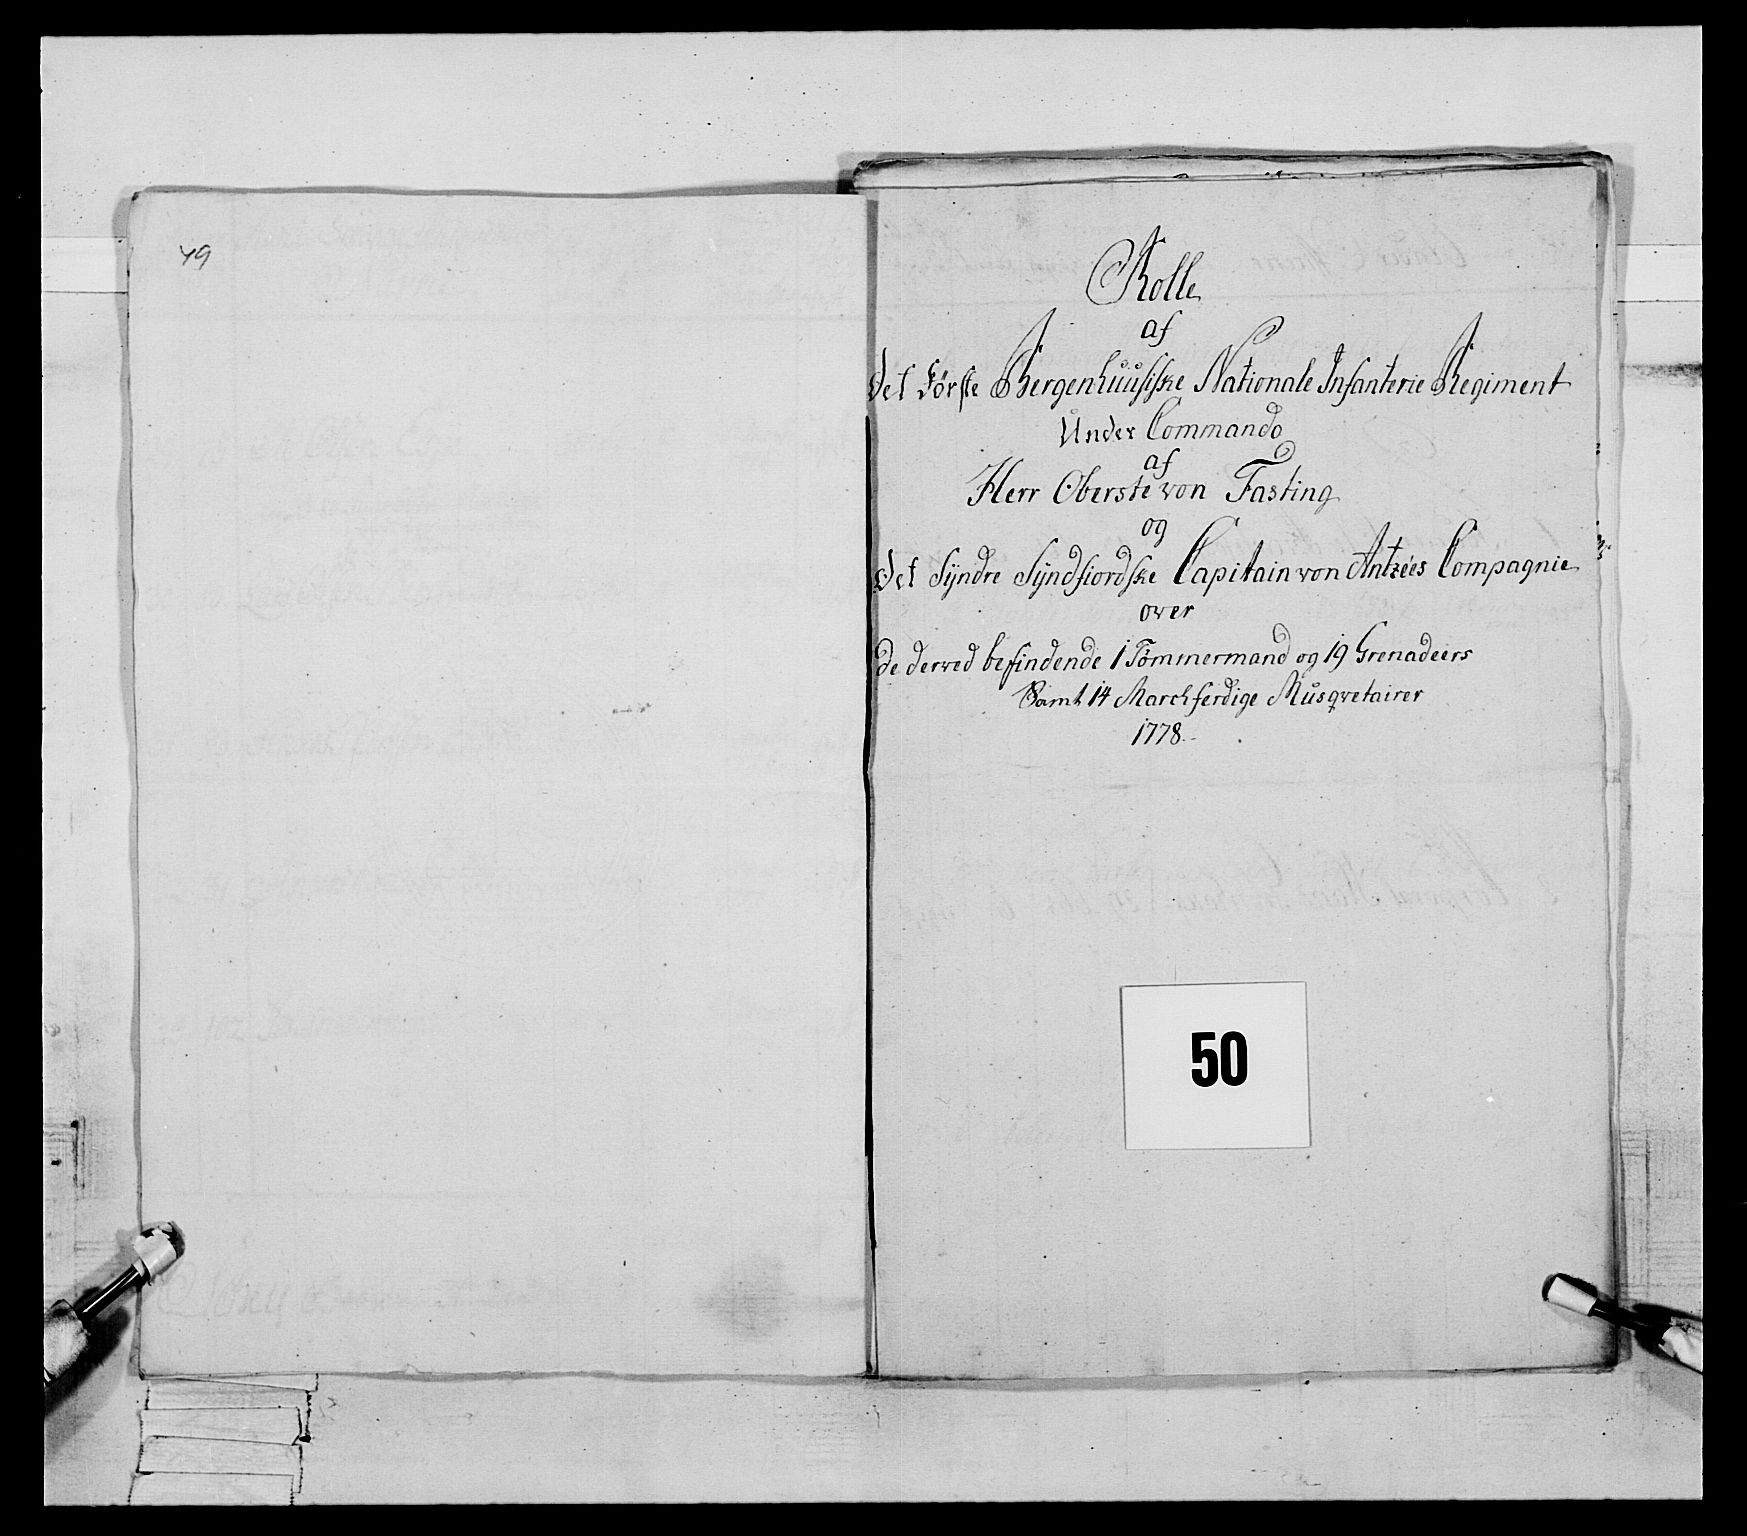 49
Rolle
af
det Første Bergenhuusiske Nationale Infanterie Regiment
Under Commando
af
Herr Oberste von Fasting
og
det Syndre Syndfiordske Capitain von Antzées Compagnie
over
de derved befindende 1 Tömmermand og 19 Grenadeers
Samt 14 Marchferdige Musqvetairer
1778
50